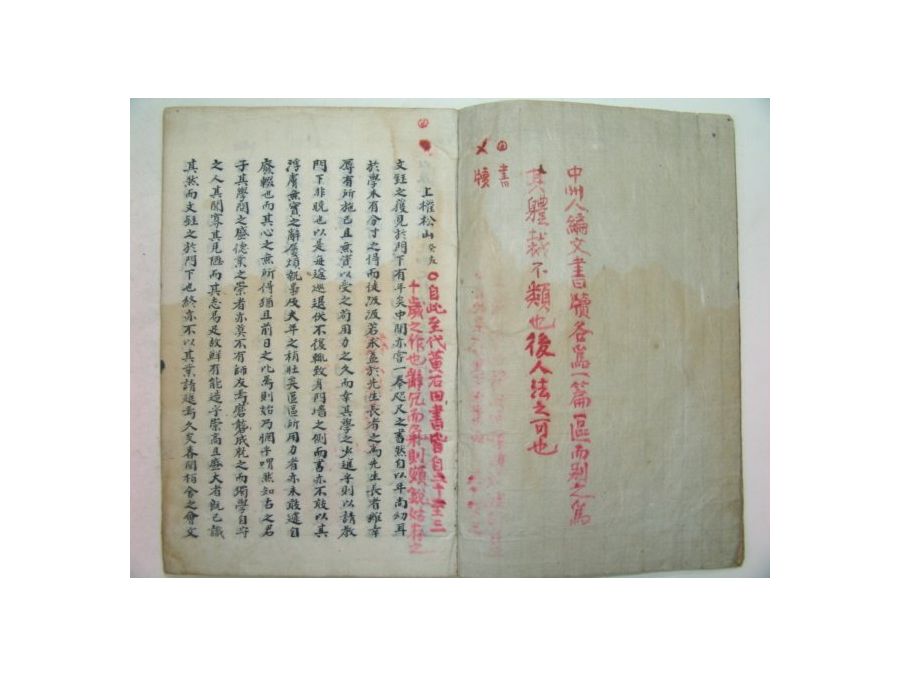 中州人編文書牘各爲一篇區而別之篤
其體裁不類也後人法之可也
書
牘
上權松山癸亥
自此至代黃石田書皆自二十至三
十歲之作也雖冗而弱則頗銳姑存之
文鉉之獲見於門下有年矣中間亦嘗一奉咫尺之書然自以年尚幼耳
於學未有分寸之得而徒汲汲若求益於先生長者之爲先生長者雖幸
辱有所施已且無實以受之苟用力之久而幸其學之少進乎則以請教
門下非晚也以是每逡巡退伏不復輒致身門墻之側而書亦不敢以其
浮膚無實之辭屢煩執事及夫年之稍壯矣區區所用力者亦未敢遽自
廢輟也而其心之無所得猶且前日之此焉則始乃惘乎喟然知古之君
子其學問之盛德業之崇者亦莫不有師友焉磨礱成就之而獨學自守
之人其聞寡其見陋而其志易足故鮮有能造乎崇高且盛大者旣已識
其然而文鉉之於門下也終亦不以其業請進焉久矣春間栢舍之會文